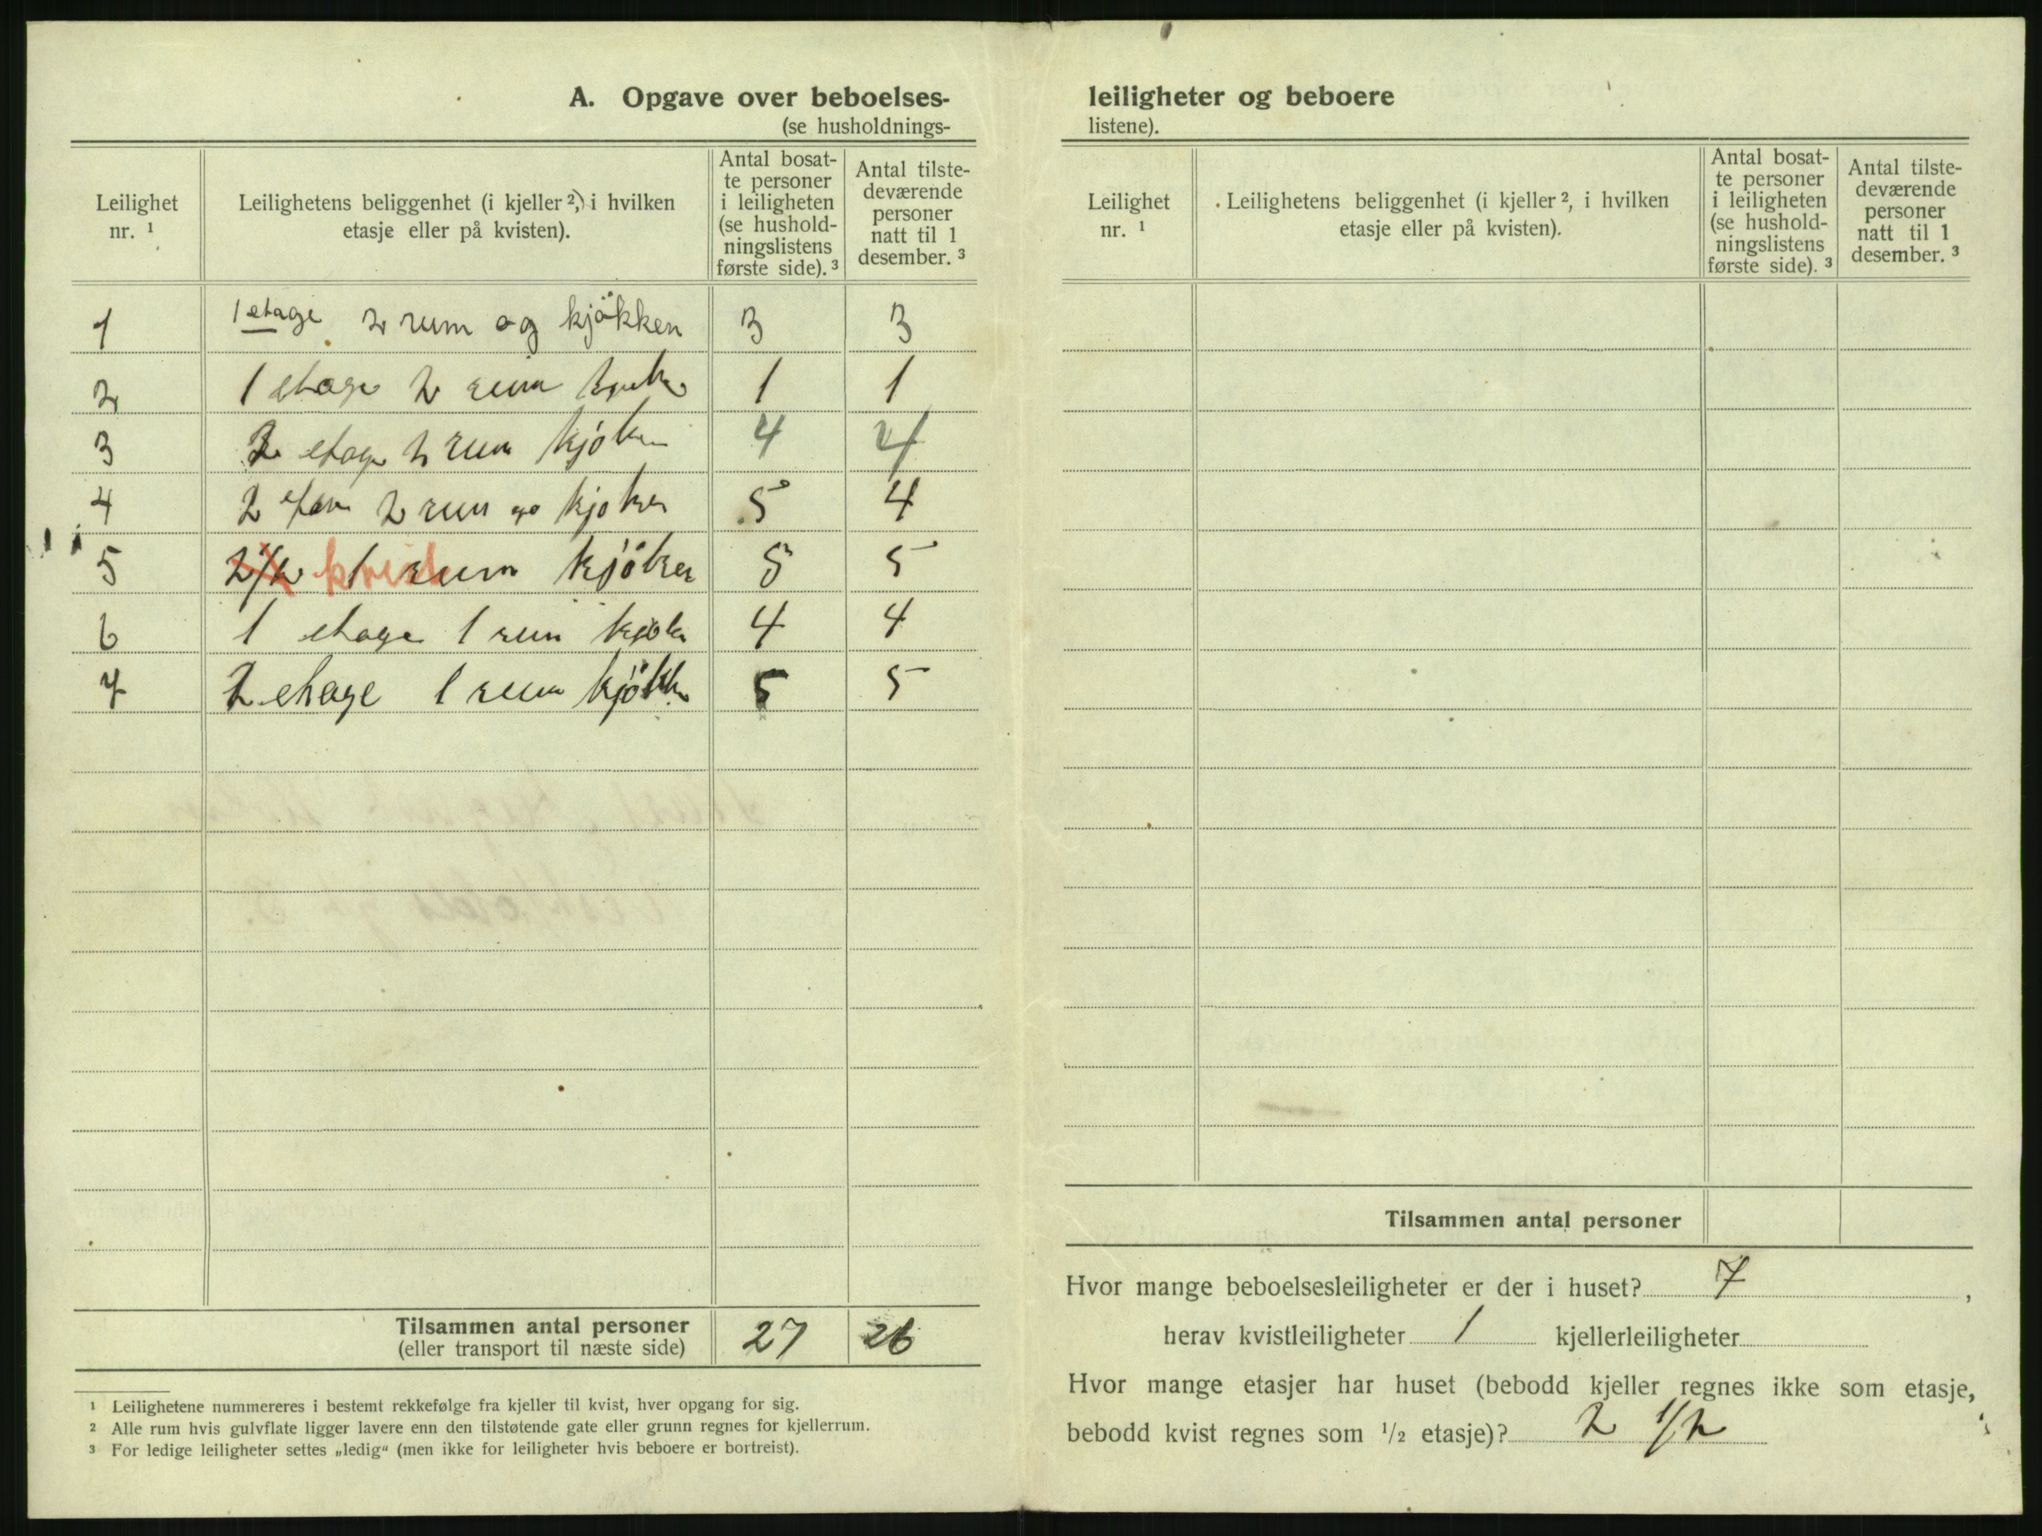 A. Opgave over beboelses-
(se husholdnings-
Leilighet
nr. ¹
Leilighetens beliggenhet (i kjeller ², i hvilken
etasje eller på kvisten).
Antal bosat-
te personer
i leiligheten
(se hushold-
ningslistens
første side). ³
Antal tilste-
deværende
personer
natt til 1
desember. ³
1 1 etage 2 rum og kjökken 3 3
2 1 etage 2 rum 1 1
3 2 etage 2 rum kjoken 4 4
4 2 2 rum og kjoken 5 4
5 2 1/2 kvist 1 rum kjöken 5 5
6 1 etage 1 rum kjøk 4 4
7 2 etage 1 rum kjökk 5 5
Tilsammen antal personer 27 26
(eller transport til næste side)
¹ Leilighetene nummereres i bestemt rekkefølge fra kjeller til kvist, hver opgang for sig.
² Alle rum hvis gulvflate ligger lavere enn den tilstøtende gate eller grunn regnes for kjellerrum.
³ For ledige leiligheter settes „ledig“ (men ikke for leiligheter hvis beboere er bortreist).
leiligheter og beboere
listene).
Leilighet
nr. ¹
Leilighetens beliggenhet (i kjeller ², i hvilken
etasje eller på kvisten).
Antal bosat-
te personer
i leiligheten
(se hushold-
ningslistens
første side). ³
Antal tilste-
deværende
personer
natt til 1
desember. ³
Tilsammen antal personer
Hvor mange beboelsesleiligheter er der i huset? 7,
herav kvistleiligheter 1 kjellerleiligheter
Hvor mange etasjer har huset (bebodd kjeller regnes ikke som etasje,
bebodd kvist regnes som 1/2 etasje)? 2 1/2